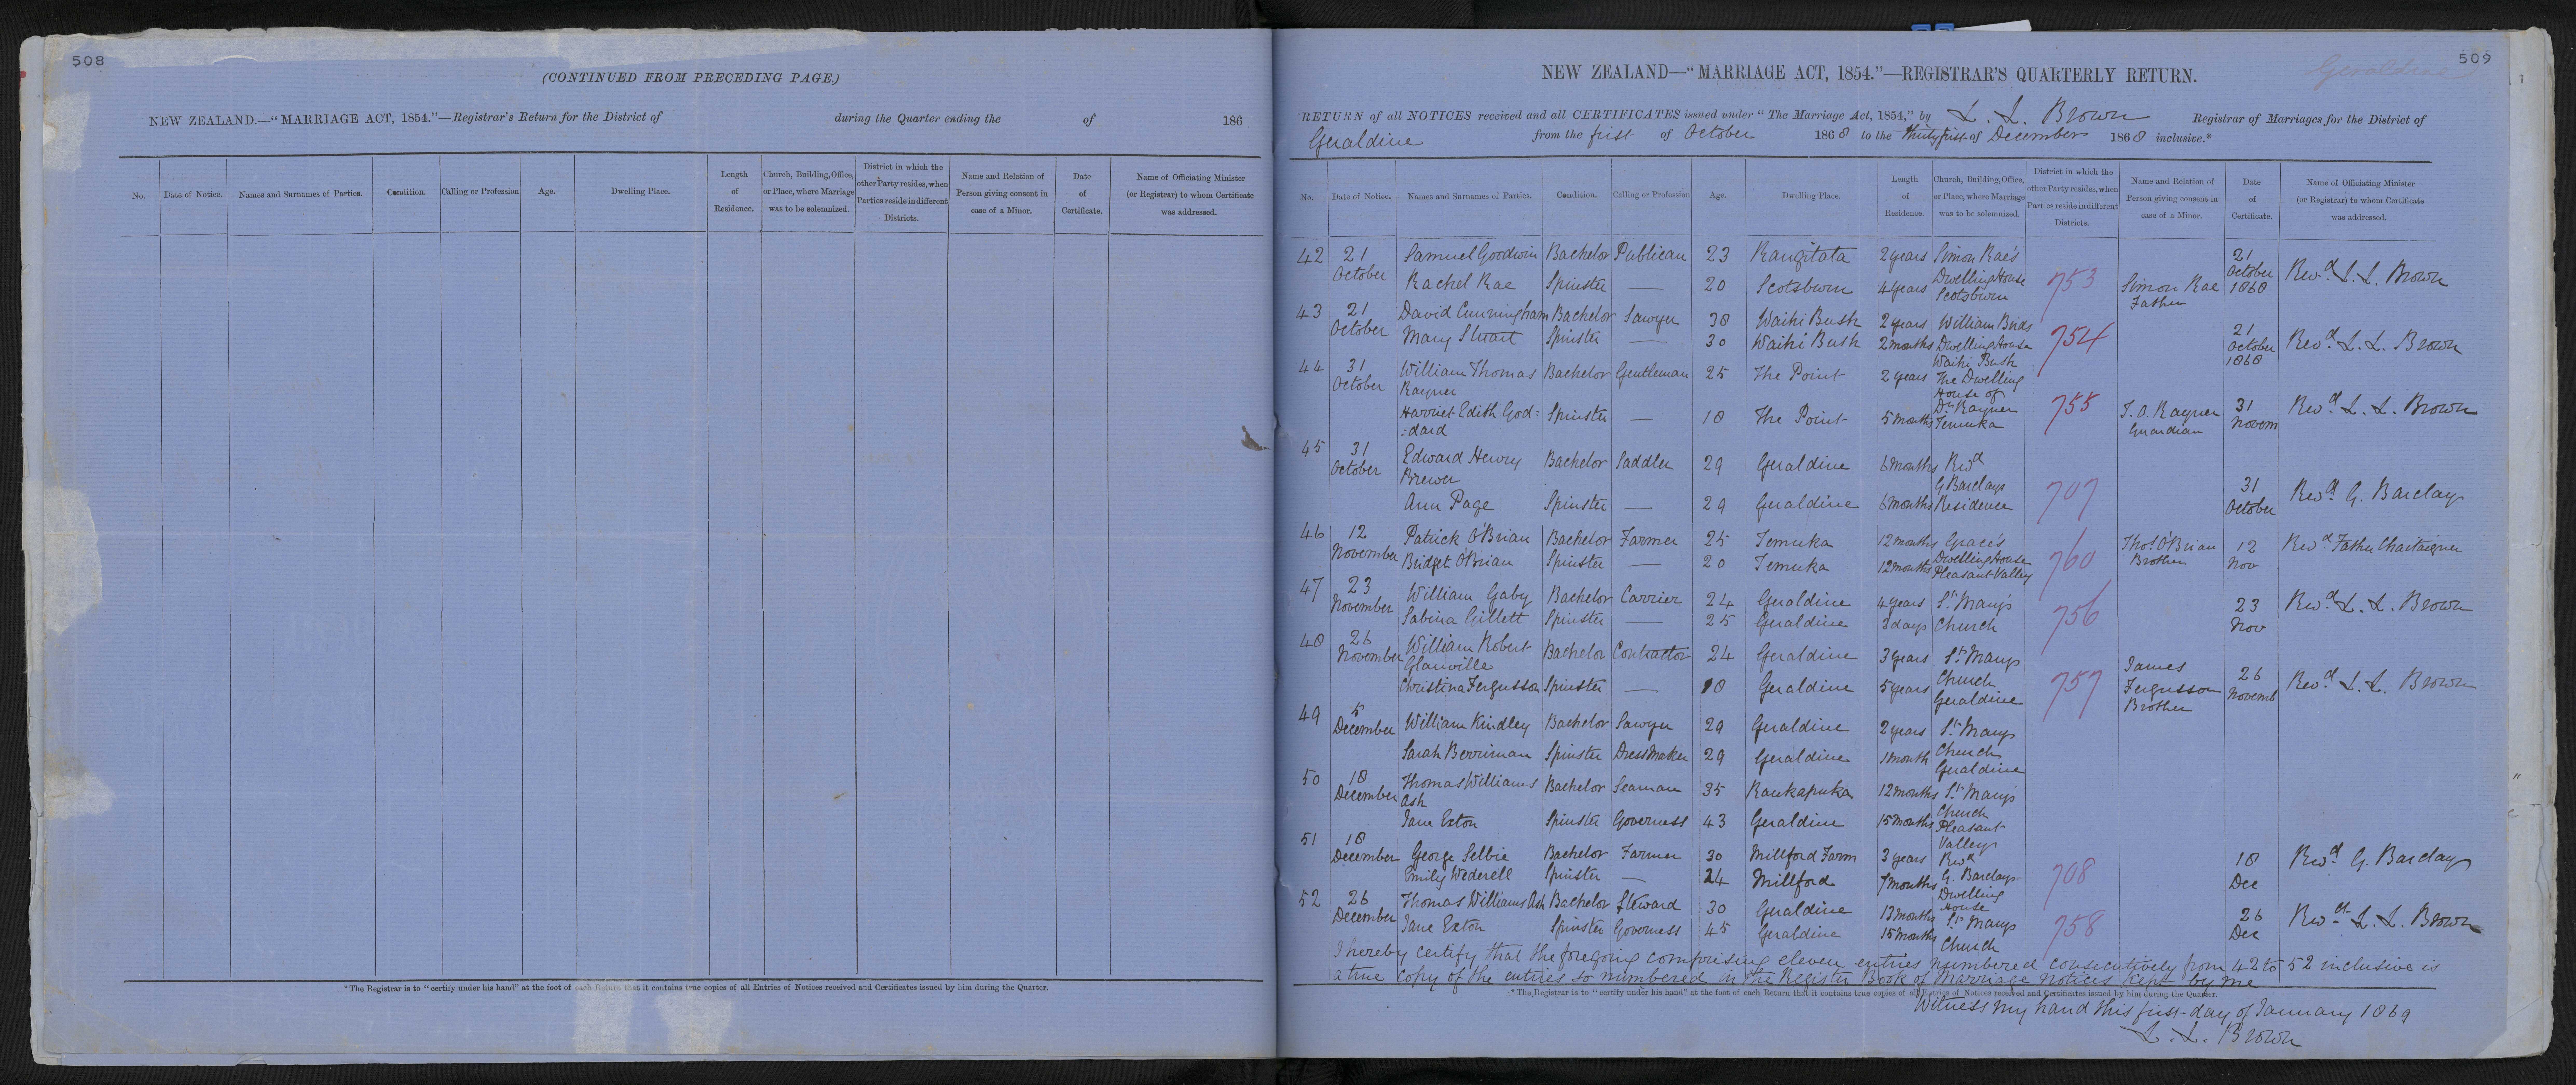 508
(CONTINUED FROM PRECEDING PAGE.)
NEW ZEALAND.—"MARRIAGE ACT, 1854."—Registrar's Return for the District of during the Quarter ending the of 186
No. Date of Notice. Names and Surnames of Parties. Condition. Calling or Profession Age. Dwelling Place. Length of Residence. Church, Building, Office, or Place, where Marriage was to be solemnized. District in which the other Party resides, when Parties reside in different Districts. Name and Relation of Person giving consent in case of a Minor. Date of Certificate. Name of Officiating Minister (or Registrar) to whom Certificate was addressed.
* The Registrar is to "certify under his hand" at the foot of each Return that it contains true copies of all Entries of Notices received and Certificates issued by him during the Quarter.
509
Geraldine
NEW ZEALAND—"MARRIAGE ACT, 1854."—REGISTRAR'S QUARTERLY RETURN.
RETURN of all NOTICES received and all CERTIFICATES issued under "The Marriage Act, 1854," by L. L. Brown Registrar of Marriages for the District of
Geraldine from the first of October 1868 to the Thirty first of December 1868 inclusive.*
No. Date of Notice. Names and Surnames of Parties. Condition. Calling or Profession Age. Dwelling Place. Length of Residence. Church, Building, Office, or Place, where Marriage was to be solemnized. District in which the other Party resides, when Parties reside in different Districts. Name and Relation of Person giving consent in case of a Minor. Date of Certificate. Name of Officiating Minister (or Registrar) to whom Certificate was addressed.
42 21 October Samuel Goodwin Bachelor Publican 23 Rangitata 2 years Simon Rae's Dwelling House Scotsburn 753 21 October 1868 Revd L. L. Brown
Rachel Rae Spinster — 20 Scotsburn 4 years Simon Rae Father
43 21 October David Cunningham Bachelor Sawyer 38 Waihi Bush 2 years William Bird's Dwelling House Waihi Bush 754 21 October 1868 Revd L. L. Brown
Mary Stuart Spinster — 30 Waihi Bush 2 months
44 31 October William Thomas Rayner Bachelor Gentleman 25 The Point 2 years The Dwelling House of Dr Rayner Temuka 755 31 Novem Revd L. L. Brown
Harriet Edith God:
:dard Spinster — 18 The Point 5 months T. O. Rayner Guardian
45 31 October Edward Henry Brewer Bachelor Saddler 29 Geraldine 6 months Revd G Barclays Residence 707 31 October Revd G. Barclay
Ann Page Spinster — 29 Geraldine 6 months
46 12 November Patrick O'Brian Bachelor Farmer 25 Temuka 12 months Grace's Dwelling House Pleasant Valley 760 Thos O'Brian Brother 12 Nov Revd Father Chataigner
Bridget O'Brian Spinster — 20 Temuka 12 months
47 23 November William Gaby Bachelor Carrier 24 Geraldine 4 years St Mary's Church 756 23 Nov Revd L. L. Brown
Sabina Gillett Spinster — 25 Geraldine 3 days
48 26 November William Robert Glanville Bachelor Contractor 24 Geraldine 3 years St Marys Church Geraldine 757 James Fergusson Brother 26 Novemb Revd L. L. Brown
Christina Fergusson Spinster — 18 Geraldine 5 years
49 5 December William Kindley Bachelor Sawyer 29 Geraldine 2 years St Marys Church Geraldine
Sarah Berriman Spinster DressMaker 29 Geraldine 1 month
50 18 December Thomas Williams Ash Bachelor Seaman 35 Raukapuka 12 months St Mary's Church Pleasant Valley
Jane Exton Spinster Governess 43 Geraldine 15 months
51 18 December George Selbie Bachelor Farmer 30 Millford Farm 3 years Revd G. Barclays Dwelling House 708 18 Dec Revd G. Barclay
Emily Wederell Spinster — 24 Millford 7 months
52 26 December Thomas Williams Ash Bachelor Steward 30 Geraldine 13 months St Marys Church 758 26 Dec Revd L. L. Brown
Jane Exton Spinster Governess 45 Geraldine 15 months
I hereby certify that the foregoing comprising eleven entries numbered consecutively from 42 to 52 inclusive is
a true copy of the entries so numbered in the Register Book of Marriage Notices kept by me
* The Registrar is to "certify under his hand" at the foot of each Return that it contains true copies of all Entries of Notices received and Certificates issued by him during the Quarter.
Witness my hand this first day of January 1869
L. L. Brown